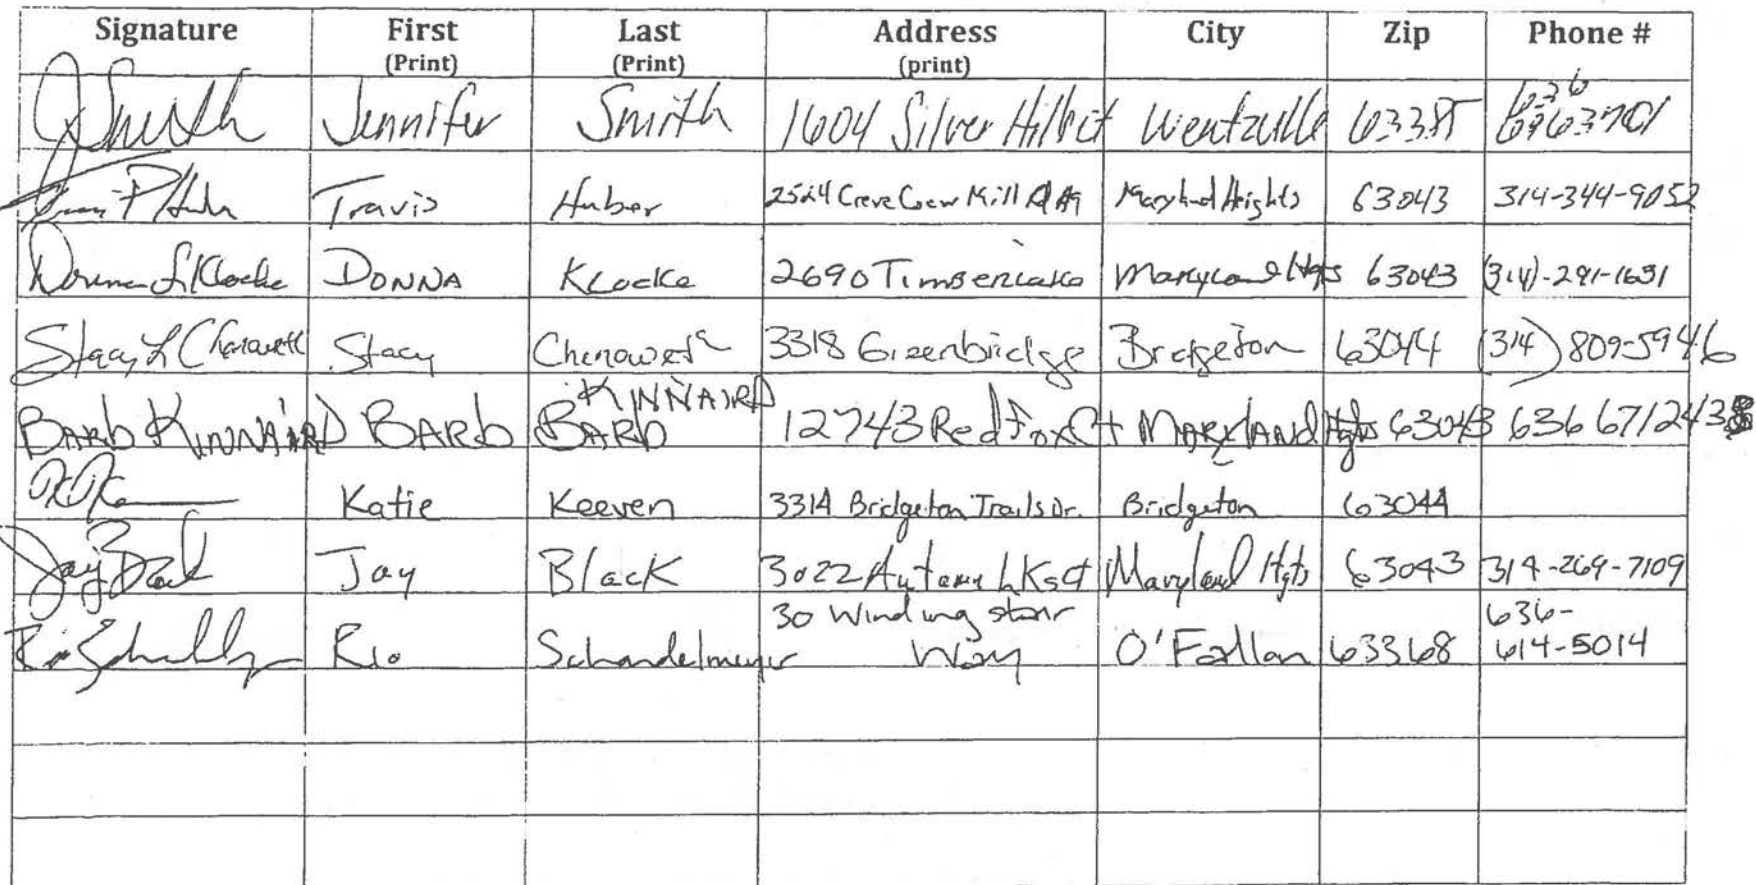 Signature First Last Address City Zip Phone #
(Print) (Print) (print)
JSmith Jennifer Smith 1604 Silver Hill ct Wentzville 63385 636
Travis Huber 2524 Creve Coeur Mill Maryland Heights 63043 314-344-9052
Donna L Klocke DONNA KLOCKE 2690 Timberlake Maryland Hgts 63043 (314)-291-1631
Stacy L Chenoweth Stacy Chenoweth 3318 Greenbridge Bridgeton 63044 (314) 809-5946
KINNAIRD
BARb KINNAIRD BARb BARb 12743 Red Fox Ct MARYLAND Hgts 63043 636 671243
Katie Keeven 3314 Bridgeton Trails Dr. Bridgeton 63044
Jay Black Jay Black 3022 Autumn Lks ct Maryland Hgts 63043 314-269-7109
30 Winding stair 636-
Rio Schandelmeyer Way O'Fallon 63368 614-5014